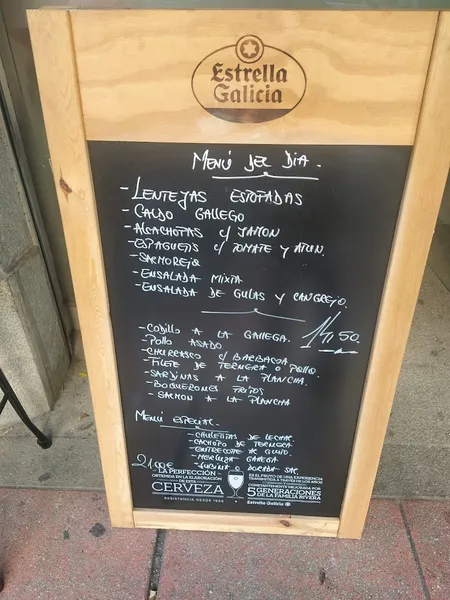 Estrella
Galicia
MENÚ DEL DIA.
- LENTEJAS ESTOFADAS
- CALDO GALLEGO
- ALCACHOFAS C/ JAMON
- ESPAGUETIS C/ TOMATE Y ATUN.
- SALMOREJO
- ENSALADA MIXTA
- ENSALADA DE GULAS Y CANGREJO.
14,50.
- CODILLO A LA GALLEGA.
- POLLO ASADO
- CHURRASCO C/ BARBACOA
- FILETE DE TERNERA O POLLO.
- SARDINAS A LA PLANCHA.
- BOQUERONES FRITOS
- SALMON A LA PLANCHA
MENÚ ESPECIAL
- CHULETITAS DE LECHAL
- CACHOPO DE TERNERA
- ENTRECOTTE AL GUSTO.
- MERLUZA GALLEGA
- LUBINA O DORADA SAL
21,00€
LA PERFECCIÓN
OBTENIDA EN LA ELABORACIÓN
DE ESTA
CERVEZA
RESISTENCIA DESDE 1906
ES EL FRUTO DE UNA EXPERIENCIA
TRANSMITIDA A TRAVÉS DE LOS AÑOS
CONSTANTEMENTE MEJORADA POR
5 GENERACIONES
DE LA FAMILIA RIVERA
Estrella Galicia